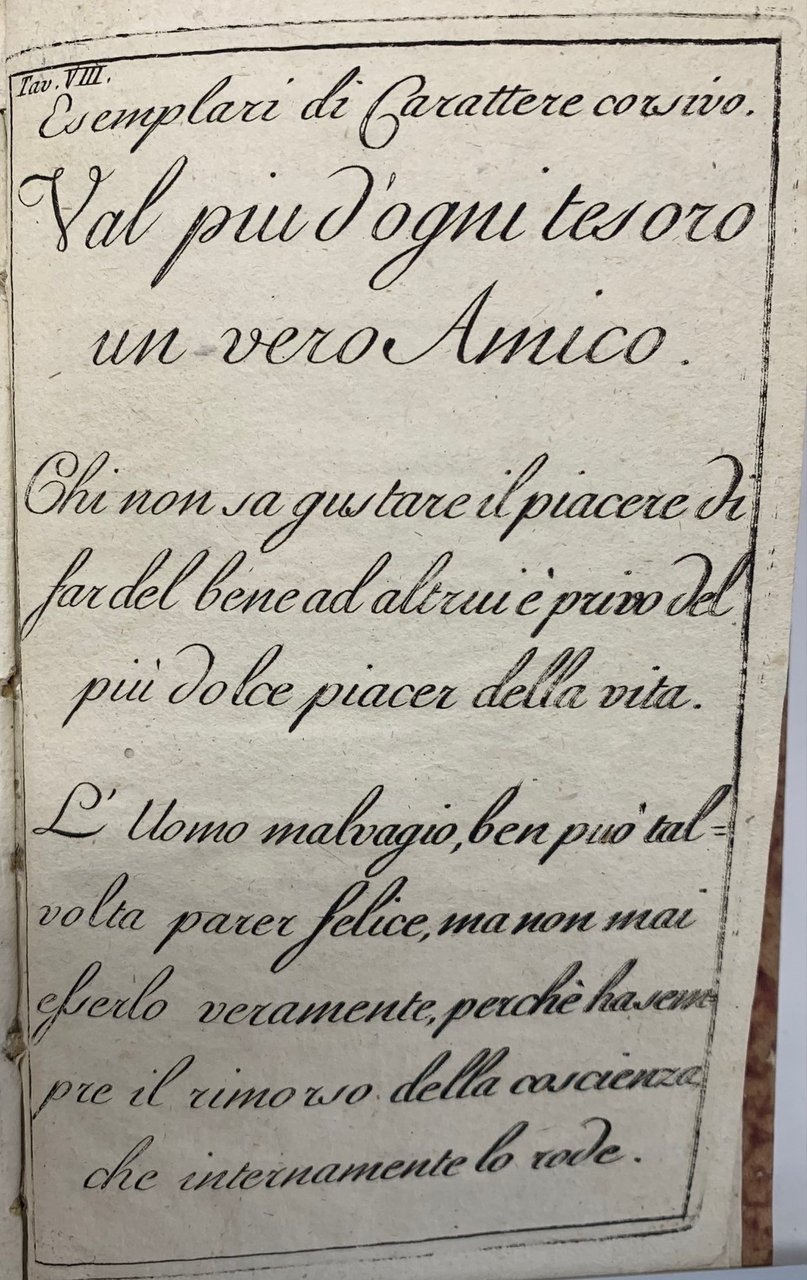 Tav. VIII.
Esemplari di Carattere corsivo.
Val piu d'ogni tesoro
un vero Amico.
Chi non sa gustare il piacere di
far del bene ad altrui è privo del
più dolce piacer della vita.
L'Uomo malvagio, ben può tal=
volta parer felice, ma non mai
esserlo veramente, perchè ha sem-
pre il rimorso della coscienza
che internamente lo rode.